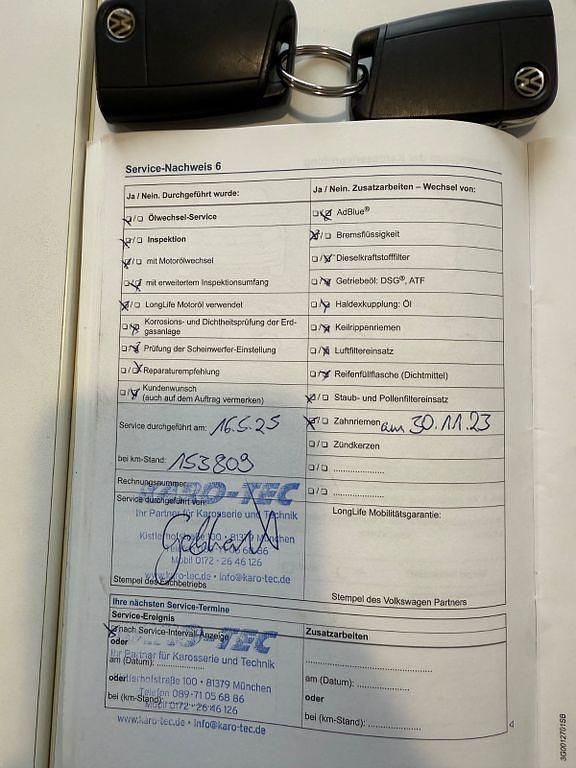 Service-Nachweis 6
Ja / Nein. Durchgeführt wurde:
Ölwechsel-Service
Inspektion
mit Motorölwechsel
mit erweitertem Inspektionsumfang
LongLife Motoröl verwendet
Korrosions- und Dichtheitsprüfung der Erd-
gasanlage
Prüfung der Scheinwerfer-Einstellung
Reparaturempfehlung
Kundenwunsch
(auch auf dem Auftrag vermerken)
Service durchgeführt am: 16.5.25
bei km-Stand: 153809
Rechnungsnummer:
KARO-TEC
Service durchgeführt von:
Ihr Partner für Karosserie und Technik
Gebhardt
Kistlerhofstraße 100 • 81379 München
Mobil 0172 - 26 46 126
www.karo-tec.de • info@karo-tec.de
Stempel des Fachbetriebs
Ja / Nein. Zusatzarbeiten – Wechsel von:
AdBlue®
Bremsflüssigkeit
Dieselkraftstofffilter
Getriebeöl: DSG®, ATF
Haldexkupplung: Öl
Keilrippenriemen
Luftfiltereinsatz
Reifenfüllflasche (Dichtmittel)
Staub- und Pollenfiltereinsatz
Zahnriemen am 30.11.23
Zündkerzen
LongLife Mobilitätsgarantie:
Stempel des Volkswagen Partners
Ihre nächsten Service-Termine
Service-Ereignis
nach Service-Intervall-Anzeige
KARO-TEC
oder
Ihr Partner für Karosserie und Technik
am (Datum): ....................
oder
Kistlerhofstraße 100 • 81379 München
Telefon 089-71 05 68 86
bei (km-Stand): ....................
Mobil 0172 - 26 46 126
www.karo-tec.de • info@karo-tec.de
Zusatzarbeiten
am (Datum): ....................
oder
bei (km-Stand): ....................
4
3G0012701SB